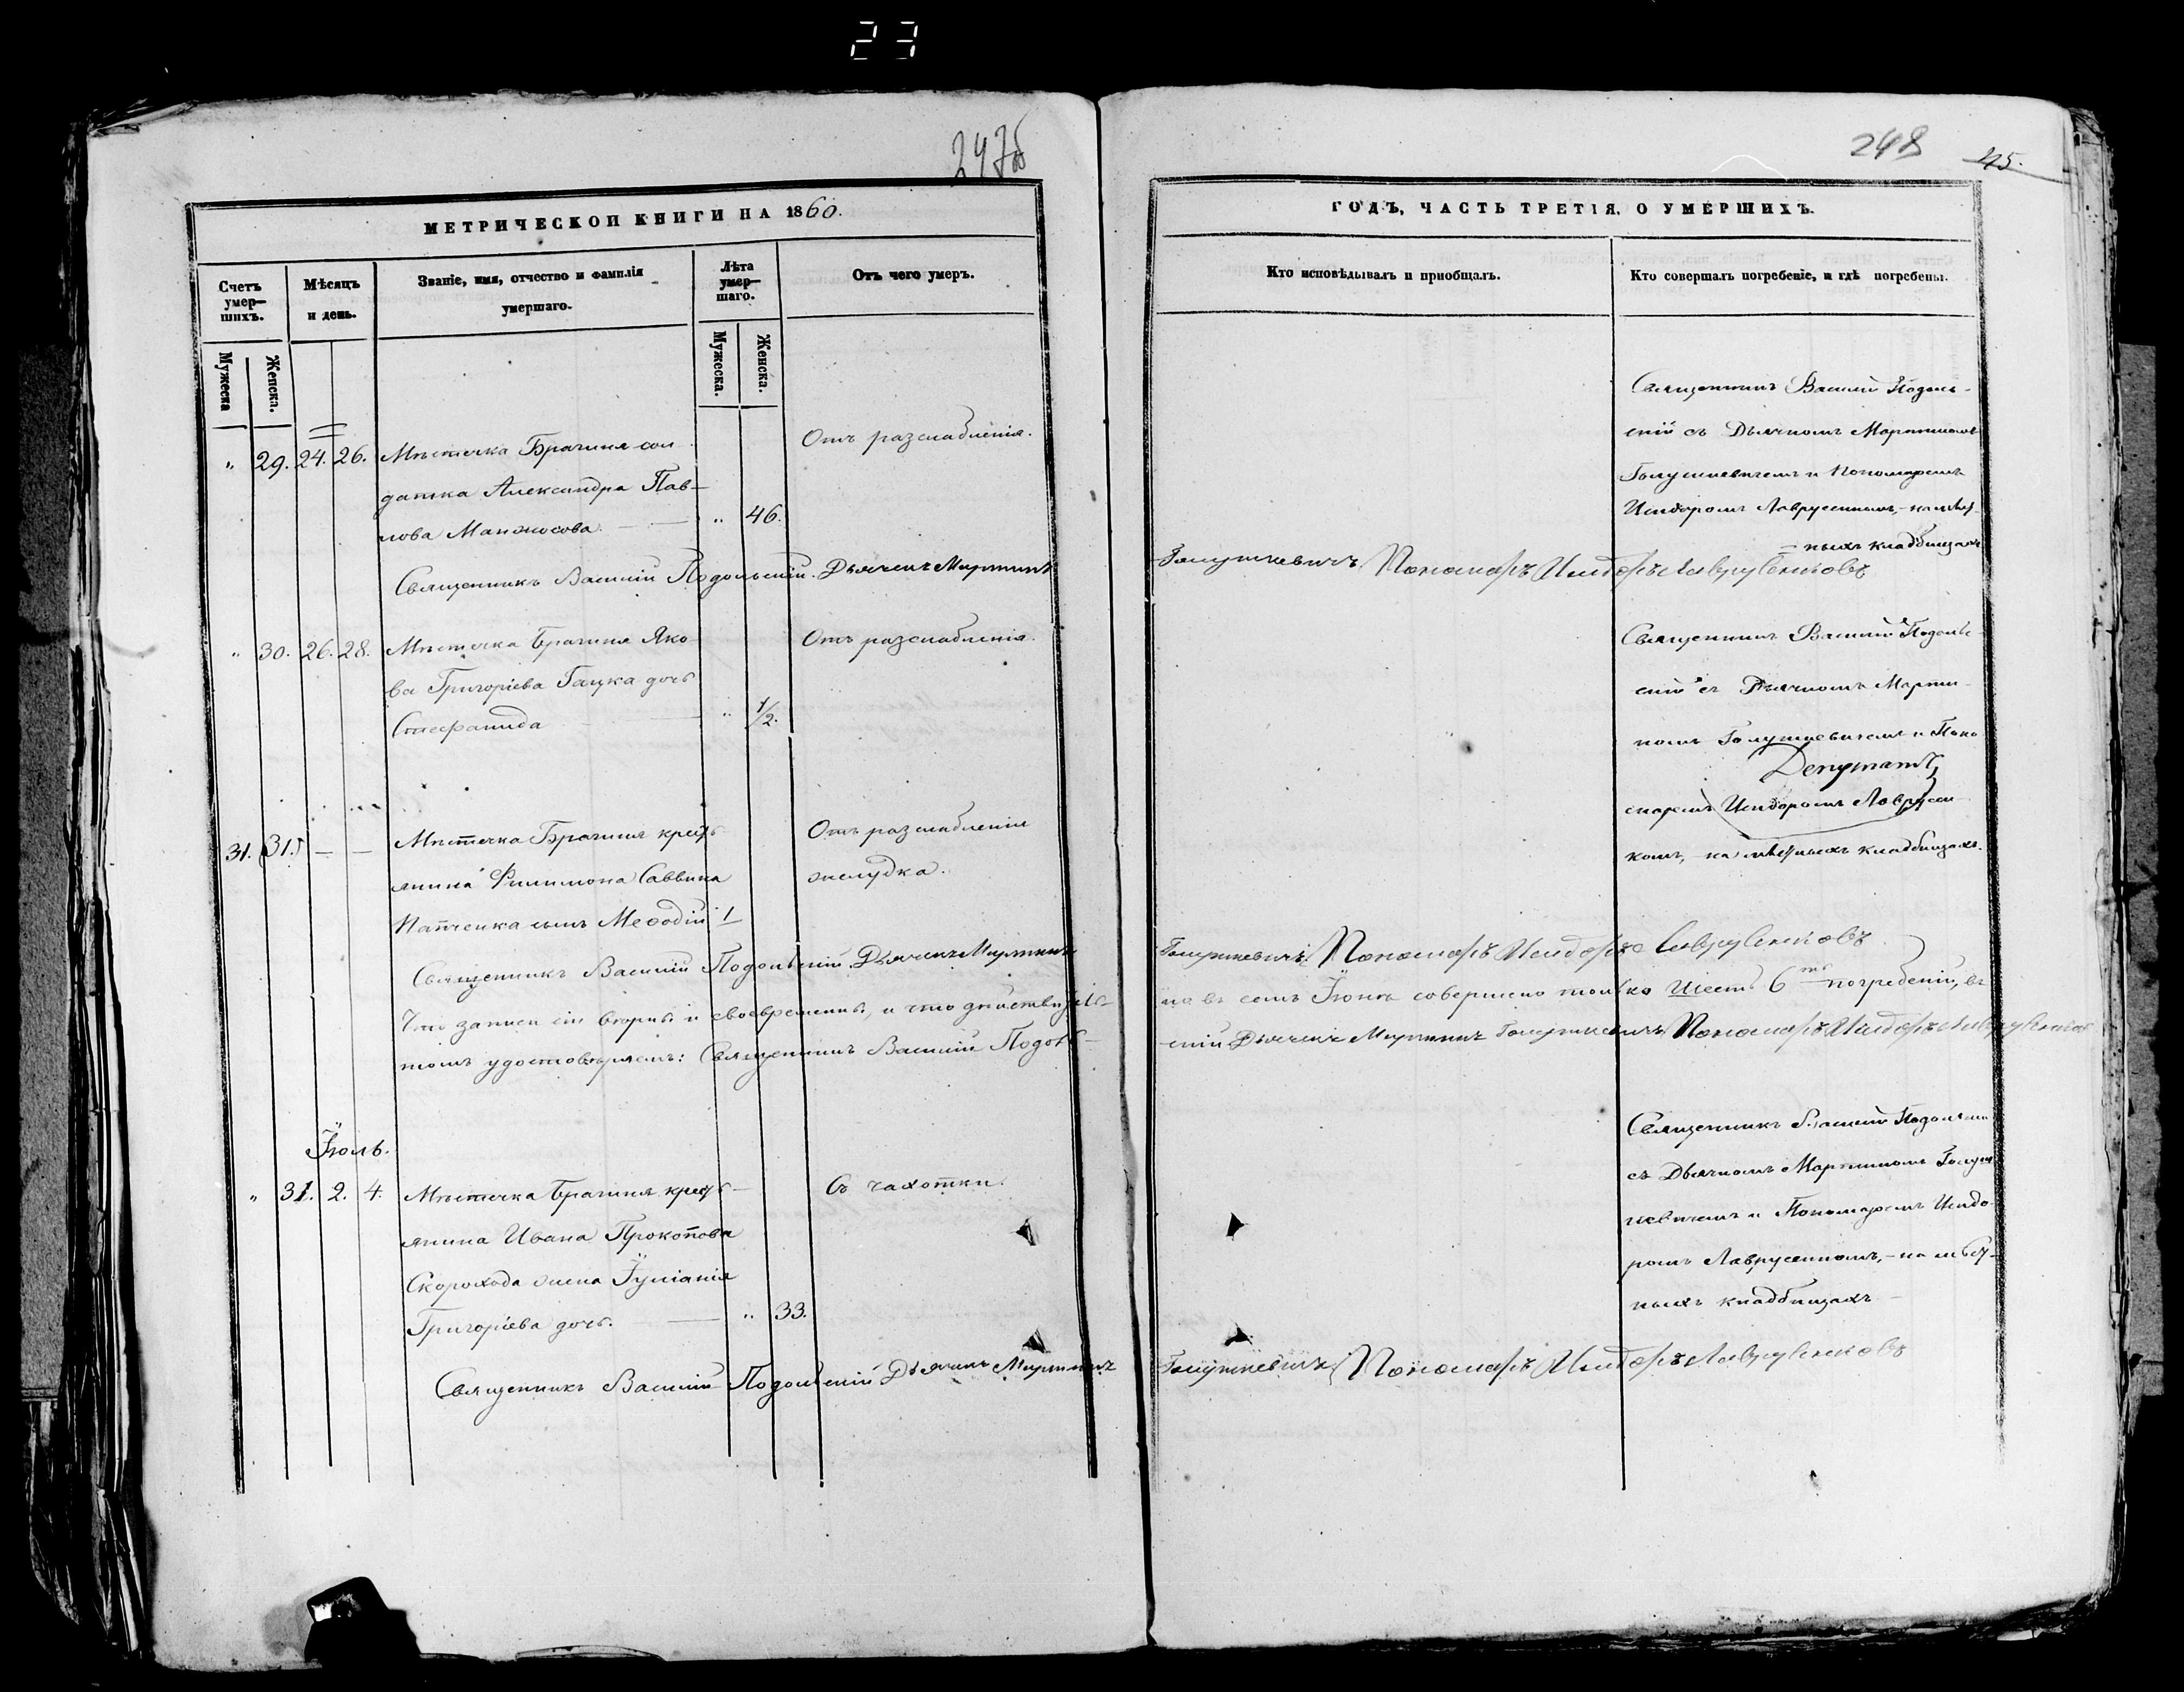 23
247об
248
45.
МЕТРИЧЕСКОЙ КНИГИ НА 1860.
ГОДЪ, ЧАСТЬ ТРЕТІЯ, О УМЕРШИХЪ.
Счетъ умер—шихъ.
Мѣсяцъ и день.
Званіе, имя, отчество и фамилія умершаго.
Лѣта умер—шаго.
Отъ чего умеръ.
Кто исповѣдывалъ и приобщалъ.
Кто совершалъ погребеніе, и гдѣ погребены.
Мужеска
Женска.
Мужеска.
Женска.
„ 29. 24. 26. Мѣстечка Брагиня сол
датка Александра Пав-
лова Манжосова. — „ 46.
Отъ разслабленія.
Священникъ Василій Подоль-
скій съ Дьячкомъ Мартиномъ
Голушкевичемъ и Пономаремъ
Исидоромъ Лаврусенкомъ, - на мѣст-
ныхъ кладбищахъ
Священникъ Василій Подольскій. Дьячекъ Мартинъ Голушкевичъ Пономарь Исидоръ Лаврусенковъ
„ 30. 26. 28. Мѣстечка Брагиня Яко-
ва Григоріева Гацка дочь
Стефанида — „ 1/2.
Отъ разслабленія.
Священникъ Василій Подоль-
скій съ Дьячкомъ Марти-
номъ Голушкевичемъ и Поно
Депутатъ
маремъ Исидоромъ Лаврусен-
комъ, на мѣстныхъ кладбищахъ.
31. (31.) — — Мѣстечка Брагиня кресть
янина Филимона Саввина
сынъ Меѳодій 1
Отъ разслабленія
желудка.
Священникъ Василій Подольскій Дьячекъ Мартинъ Голушкевичъ. Пономарь Исидоръ Лаврусенковъ
Что записи сіи вѣрны и своевременны, и что дѣйствитель-
но въ семъ Іюнѣ совершено только Шесть 6ть погребеній, въ
томъ удостовѣряемъ: Священникъ Василій Подоль-
скій Дьячекъ Мартинъ Голушкевичъ Пономарь Исидоръ Лаврусенков
Іюль.
„ 31. 2. 4. Мѣстечка Брагиня кресть-
янина Ивана Прокопова
Скорохода жена Іуліанія
Григоріева дочь. — „ 33.
Съ чахотки.
Священникъ Василій Подольскій
съ Дьячкомъ Мартиномъ Голуш
кевичемъ и Пономаремъ Исидо-
ромъ Лаврусенкомъ, - на мѣст-
ныхъ кладбищахъ
Священникъ Василій Подольскій Дьячекъ Мартинъ Голушкевичъ Пономарь Исидоръ Лаврусенковъ